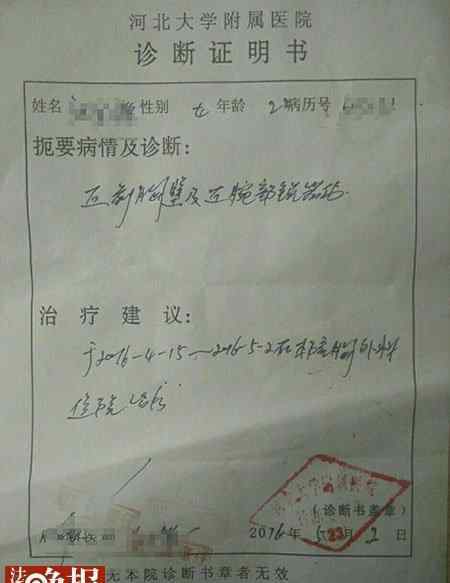 河北大学附属医院
诊断证明书
姓名 性别 女 年龄 2 病历号
扼要病情及诊断:
胸壁及 腕部锐器伤.
治疗建议:
于2016-4-15～2016-5-2在 胸外科
住院治疗
(诊断书盖章)
医
2016年5月2日
无本院诊断书章者无效
法晚报